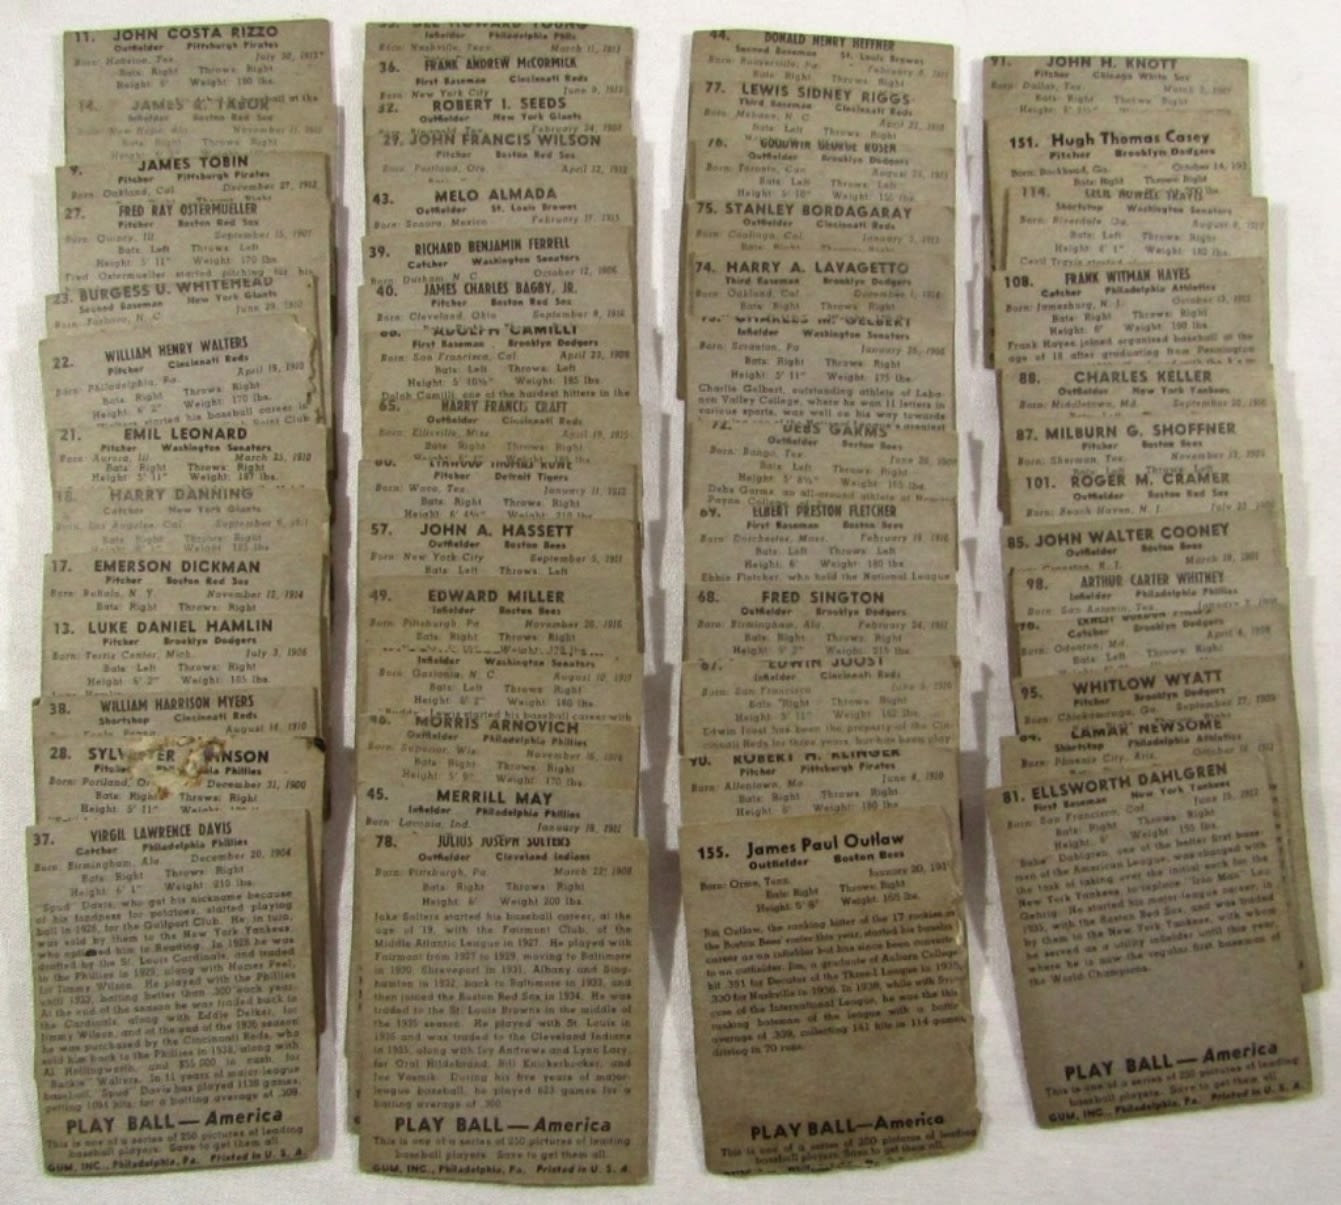 11. JOHN COSTA RIZZO
Outfielder Pittsburgh Pirates
Born: Houston, Tex. July 30, 1913
Bats: Right Throws: Right
Height: 6' Weight: 190 lbs.
14. JAMES R. TABOR
Infielder Boston Red Sox
Born: New Hope, Ala. November 11,
9. JAMES TOBIN
Pitcher Pittsburgh Pirates
Born: Oakland, Cal December 27, 1912
Bats: Right Throws: Right
27. FRED RAY OSTERMUELLER
Pitcher Boston Red Sox
Born: Quincy, Ill September 15, 1907
Bats: Left Throws: Left
Height: 5' 11" Weight: 170 lbs.
Fred Ostermueller started pitching for his
23. BURGESS U. WHITEHEAD
Second Baseman New York Giants
Born: Tarboro, N. C June 29, 1910
22. WILLIAM HENRY WALTERS
Pitcher Cincinnati Reds
Born: Philadelphia, Pa. April 19, 1910
Bats: Right Throws: Right
Height: 6' 2" Weight: 170 lbs.
started his baseball career in
21. EMIL LEONARD
Pitcher Washington Senators
Born: Aurora, Ill March 25, 1910
Bats: Right Throws: Right
Height: 5' 11" Weight: 187 lbs.
18. HARRY DANNING
Catcher New York Giants
Born: Los Angeles, Cal September 6, 1911
Bats: Right Throws: Right
17. EMERSON DICKMAN
Pitcher Boston Red Sox
Born: Buffalo, N. Y. November 12, 1914
Bats: Right Throws: Right
13. LUKE DANIEL HAMLIN
Pitcher Brooklyn Dodgers
Born: Terris Center, Mich. July 3, 1906
Bats: Left Throws: Right
Height: 6' 2" Weight: 185 lbs.
38. WILLIAM HARRISON MYERS
Shortstop Cincinnati Reds
August 14, 1910
28. SYLV ER NSON
Phillies
Born: Portland, Or December 31, 1900
Bats: Right Throws: Right
Height: 5' 11"
37. VIRGIL LAWRENCE DAVIS
Catcher Philadelphia Phillies
Born: Birmingham, Ala December 20, 1904
Bats: Right Throws: Right
Height: 6' 1" Weight: 210 lbs.
"Spud" Davis, who got his nickname because
of his fondness for potatoes, started playing
ball in 1926, for the Gulfport Club. He, in turn,
was sold by them to the New York Yankees,
who optioned him to Reading. In 1928 he was
drafted by the St. Louis Cardinals, and traded
to the Phillies in 1929, along with Homer Peel,
for Jimmy Wilson. He played with the Phillies
until 1933, batting better than .300 each year.
At the end of the season he was traded back to
the Cardinals, along with Eddie Delker, for
Jimmy Wilson, and at the end of the 1936 season
he was purchased by the Cincinnati Reds, who
sold him back to the Phillies in 1938, along with
Al Hollingsworth, and $55,000 in cash, for
"Bucky" Walters. In 11 years of major-league
baseball, "Spud" Davis has played 1138 games,
getting 1094 hits, for a batting average of .309.
PLAY BALL—America
This is one of a series of 250 pictures of leading
baseball players. Save to get them all.
GUM, INC., Philadelphia, Pa. Printed in U. S. A.
Infielder Philadelphia Phils
Born: Nashville, Tenn. March 11, 1913
36. FRANK ANDREW McCORMICK
First Baseman Cincinnati Reds
Born: New York City June 9, 1913
32. ROBERT I. SEEDS
Outfielder New York Giants
February 24, 1908
29. JOHN FRANCIS WILSON
Pitcher Boston Red Sox
Born: Portland, Ore. April 12, 1912
43. MELO ALMADA
Outfielder St. Louis Browns
Born: Sonora, Mexico February 17, 1913
39. RICHARD BENJAMIN FERRELL
Catcher Washington Senators
Born: Durham, N. C October 12, 1906
40. JAMES CHARLES BAGBY, JR.
Pitcher Boston Red Sox
Born: Cleveland, Ohio September 8, 1916
ADOLPH CAMILLI
First Baseman Brooklyn Dodgers
Born: San Francisco, Cal April 23, 1908
Bats: Left Throws: Left
Height: 5' 10½" Weight: 185 lbs.
Dolph Camilli, one of the hardest hitters in the
65. HARRY FRANCIS CRAFT
Outfielder Cincinnati Reds
Born: Ellisville, Miss April 19, 1915
Bats: Right Throws: Right
LYNWOOD THOMAS ROWE
Pitcher Detroit Tigers
Born: Waco, Tex. January 11, 1912
Bats: Right Throws: Right
Height: 6' 4½" Weight: 210 lbs.
57. JOHN A. HASSETT
Outfielder Boston Bees
Born: New York City September 5, 1911
Bats: Left Throws: Left
49. EDWARD MILLER
Infielder Boston Bees
Born: Pittsburgh, Pa November 26, 1916
Bats: Right Throws: Right
Infielder Washington Senators
Born: Gastonia, N. C. August 10, 1919
Bats: Left Throws: Right
Height: 6' 2" Weight: 160 lbs.
started his baseball career with
46. MORRIS ARNOVICH
Outfielder Philadelphia Phillies
Born: Superior, Wis. November 16, 1914
Bats: Right Throws: Right
Height: 5' 9" Weight: 170 lbs.
45. MERRILL MAY
Infielder Philadelphia Phillies
Born: Laconia, Ind. January 18, 1911
78. JULIUS JOSEPH SOLTERS
Outfielder Cleveland Indians
Born: Pittsburgh, Pa. March 22, 1908
Bats: Right Throws: Right
Height: 6' Weight: 200 lbs.
Jake Solters started his baseball career, at the
age of 19, with the Fairmont Club, of the
Middle Atlantic League in 1927. He played with
Fairmont from 1927 to 1929, moving to Baltimore
in 1930, Shreveport in 1931, Albany and Bing-
hamton in 1932, back to Baltimore in 1933, and
then joined the Boston Red Sox in 1934. He was
traded to the St. Louis Browns in the middle of
the 1935 season. He played with St. Louis in
1936 and was traded to the Cleveland Indians
in 1935, along with Ivy Andrews and Lynn Lary,
for Oral Hildebrand, Bill Knickerbocker, and
Joe Vosmik. During his five years of major-
league baseball, he played 623 games for a
batting average of .300.
PLAY BALL—America
This is one of a series of 250 pictures of leading
baseball players. Save to get them all.
GUM, INC., Philadelphia, Pa. Printed in U. S. A.
44. DONALD HENRY HEFFNER
Second Baseman St. Louis Browns
Born: Rouzerville, Pa. February 8, 1911
Bats: Right Throws: Right
77. LEWIS SIDNEY RIGGS
Third Baseman Cincinnati Reds
Born: Mebane, N. C April 22, 1910
Bats: Left Throws: Right
76. GOODWIN GEORGE ROSEN
Outfielder Brooklyn Dodgers
Born: Toronto, Can August 25, 1913
Bats: Left Throws: Left
Height: 5' 10" Weight: 155 lbs.
75. STANLEY BORDAGARAY
Outfielder Cincinnati Reds
Born: Coalinga, Cal. January 3, 1912
Bats: Right Throws: Right
74. HARRY A. LAVAGETTO
Third Baseman Brooklyn Dodgers
Born: Oakland, Cal December 1, 1914
Bats: Right Throws: Right
CHARLES M. GELBERT
Infielder Washington Senators
Born: Scranton, Pa January 26, 1906
Bats: Right Throws: Right
Height: 5' 11" Weight: 175 lbs.
Charlie Gelbert, outstanding athlete of Leba-
non Valley College, where he won 11 letters in
various sports, was well on his way towards
72. DEBS GARMS
Outfielder Boston Bees
Born: Bangs, Tex. June 26, 1908
Bats: Left Throws: Right
Height: 5' 8½" Weight: 165 lbs.
Debs Garms, an all-around athlete of Howard
Payne College
69. ELBERT PRESTON FLETCHER
First Baseman Boston Bees
Born: Dorchester, Mass. February 18, 1916
Bats: Left Throws: Left
Height: 6' Weight: 180 lbs.
Ebbie Fletcher, who hold the National League
68. FRED SINGTON
Outfielder Brooklyn Dodgers
Born: Birmingham, Ala. February 24, 1911
Bats: Right Throws: Right
Height: 6' 2" Weight: 215 lbs.
67. EDWIN JOOST
Infielder Cincinnati Reds
Born: San Francisco June 5, 1916
Bats: Right Throws: Right
Height: 5' 11" Weight: 162 lbs.
Edwin Joost has been the property of the Cin-
cinnati Reds for three years, having been play
90. ROBERT H. KLINGER
Pitcher Pittsburgh Pirates
Born: Allenton, Mo June 4, 1910
Bats: Right Throws: Right
Height: 6' Weight: 180 lbs.
155. James Paul Outlaw
Outfielder Boston Bees
Born: Orme, Tenn. January 20, 191
Bats: Right Throws: Right
Height: 5' 8" Weight: 165 lbs.
Jim Outlaw, the ranking hitter of the 17 rookies on
the Boston Bees' roster this year, started his baseball
career as an infielder but has since been converted
to an outfielder. Jim, a graduate of Auburn College
hit .351 for Decatur of the Three-I League in 1935,
.330 for Nashville in 1936. In 1938, while with Syra-
cuse of the International League, he was the third
ranking batsman of the league with a batting
average of .339, collecting 141 hits in 114 games,
driving in 70 runs.
PLAY BALL—America
This is one of a series of 250 pictures of leading
baseball players. Save to get them all.
91. JOHN H. KNOTT
Pitcher Chicago White Sox
Born: Dallas, Tex. March 2, 1907
Bats: Right Throws: Right
151. Hugh Thomas Casey
Pitcher Brooklyn Dodgers
Born: Buckhead, Ga. October 14, 191
Bats: Right Throws: Right
114. CECIL HOWELL TRAVIS
Shortstop Washington Senators
Born: Riverdale, Ga. August 8, 1913
Bats: Left Throws: Right
Height: 6' 1" Weight: 182 lbs.
Cecil Travis started
108. FRANK WITMAN HAYES
Catcher Philadelphia Athletics
Born: Jamesburg, N. J. October 13,
Bats: Right Throws: Right
Height: 6' Weight: 190 lbs.
Frank Hayes joined organized baseball at the
age of 18 after graduating from Pennington
88. CHARLES KELLER
Outfielder New York Yankees
Born: Middletown, Md. September 20, 1916
87. MILBURN G. SHOFFNER
Pitcher Boston Bees
Born: Sherman, Tex. November 13, 1905
Bats: Left Throws: Left
101. ROGER M. CRAMER
Outfielder Boston Red Sox
Born: Beach Haven, N. J. July 22,
85. JOHN WALTER COONEY
Outfielder Boston Bees
Cranston, R. I. March 18, 1901
98. ARTHUR CARTER WHITNEY
Infielder Philadelphia Phillies
Born: San Antonio, Tex.
Catcher Brooklyn Dodgers
Born: Odenton, Md. April 4, 1908
Bats: Left Throws: Right
95. WHITLOW WYATT
Pitcher Brooklyn Dodgers
Born: Chickamauga, Ga. September 27, 1909
LAMAR NEWSOME
Shortstop Philadelphia Athletics
Born: Phoenix City, Ala. October 16,
81. ELLSWORTH DAHLGREN
First Baseman New York Yankees
Born: San Francisco, Cal. June 15, 1912
Bats: Right Throws: Right
Height: 6' Weight: 190 lbs.
"Babe" Dahlgren, one of the better first base-
men of the American League, was charged with
the task of taking over the initial sack for the
New York Yankees, to replace "Iron Man" Lou
Gehrig. He started his major league career, in
1935, with the Boston Red Sox, and was traded
by them to the New York Yankees, with whom
he served as a utility infielder until this year,
where he is now the regular first baseman of
the World Champions.
PLAY BALL—America
This is one of a series of 250 pictures of leading
baseball players. Save to get them all.
GUM, INC., Philadelphia, Pa. Printed in U. S. A.